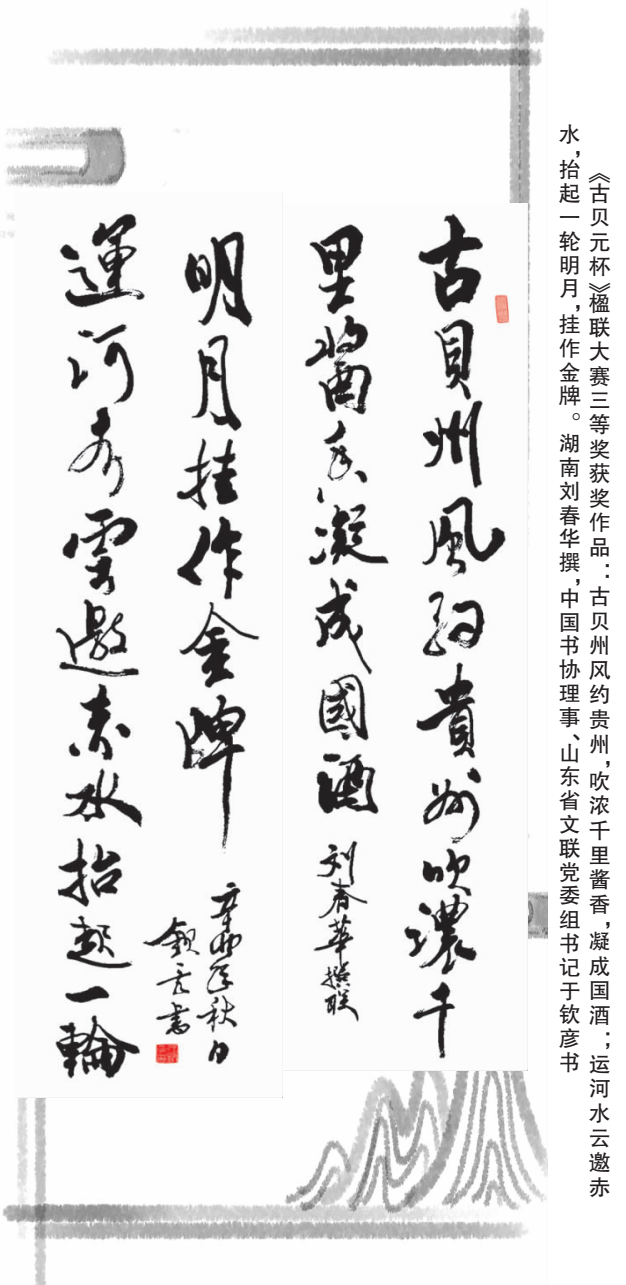 《古贝元杯》楹联大赛三等奖获奖作品：古贝州风约贵州，吹浓千里酱香，凝成国酒；运河水云邀赤
水，抬起一轮明月，挂作金牌。湖南刘春华撰，中国书协理事、山东省文联党委组书记于钦彦书
古貝州風约貴州吹濃千
里醬香凝成國酒
刘春華撰联
運河秀雲邀赤水抬起一輪
明月挂作金牌
辛卯年秋日
钦彦書